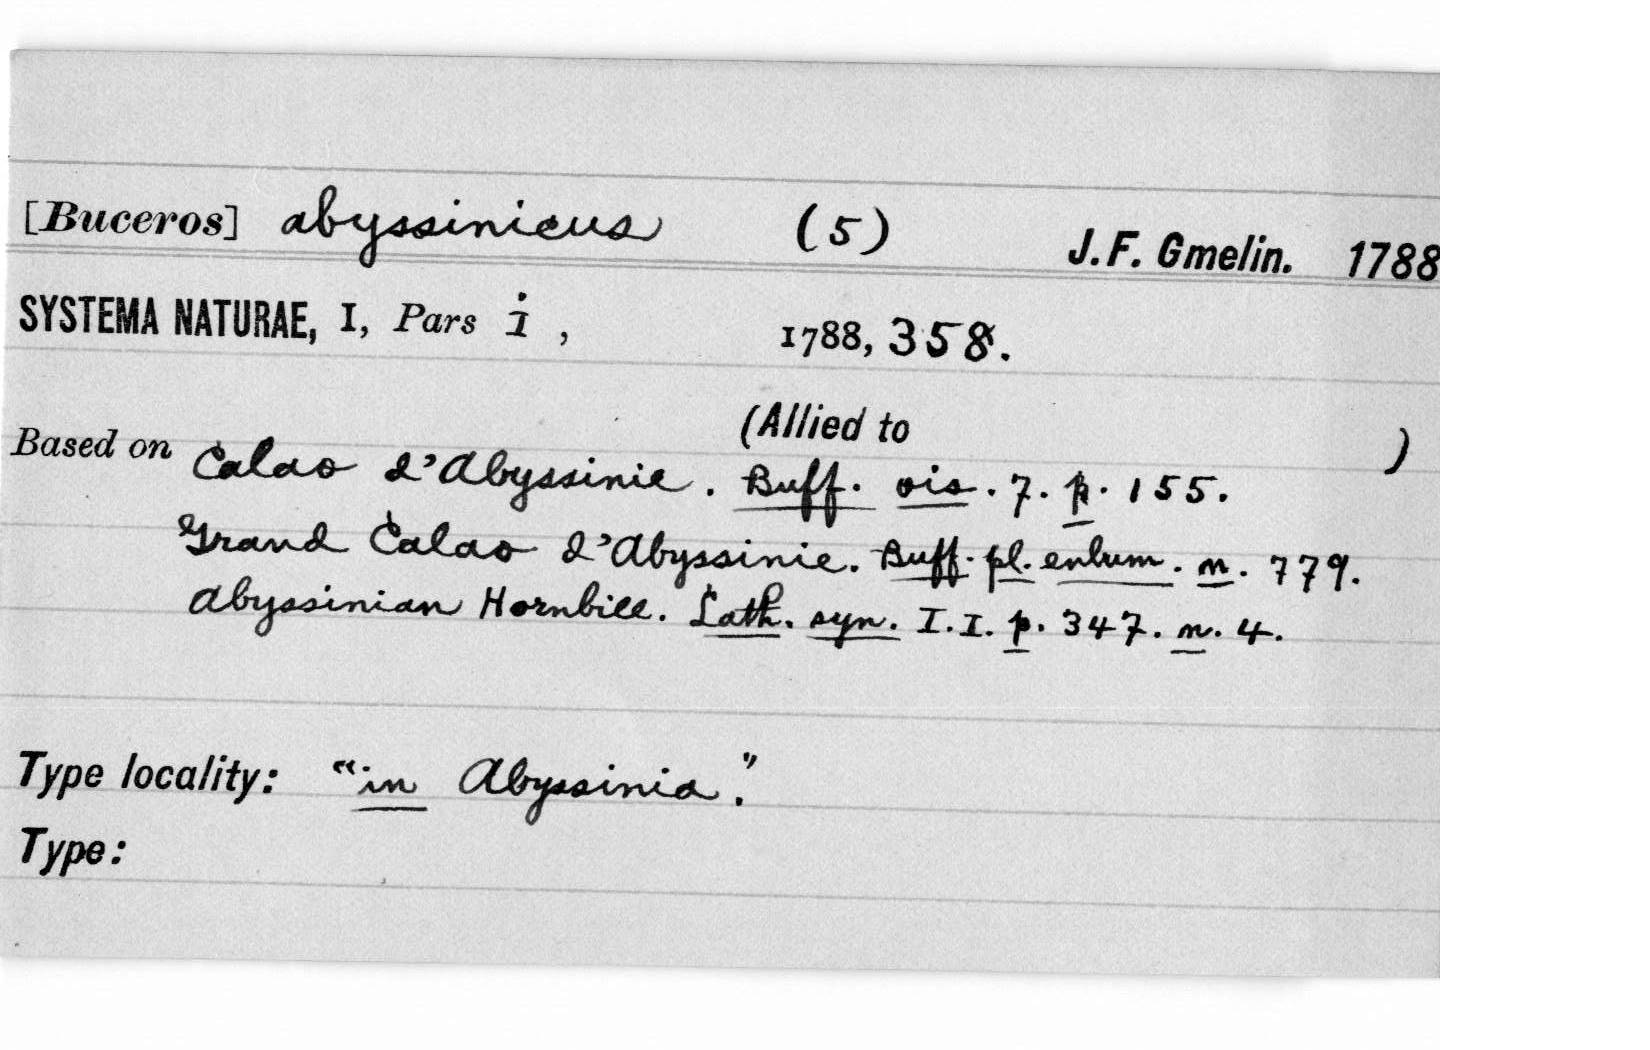 [Buceros] abyssinicus (5) J.F. Gmelin. 1788
SYSTEMA NATURAE, I, Pars i , 1788, 358.
(Allied to )
Based on Calao d'Abyssinie. Buff. ois. 7. p. 155.
Grand Calao d'Abyssinie. Buff. pl. enlum. n. 779.
Abyssinian Hornbill. Lath. syn. I. I. p. 347. n. 4.
Type locality: "in Abyssinia."
Type: